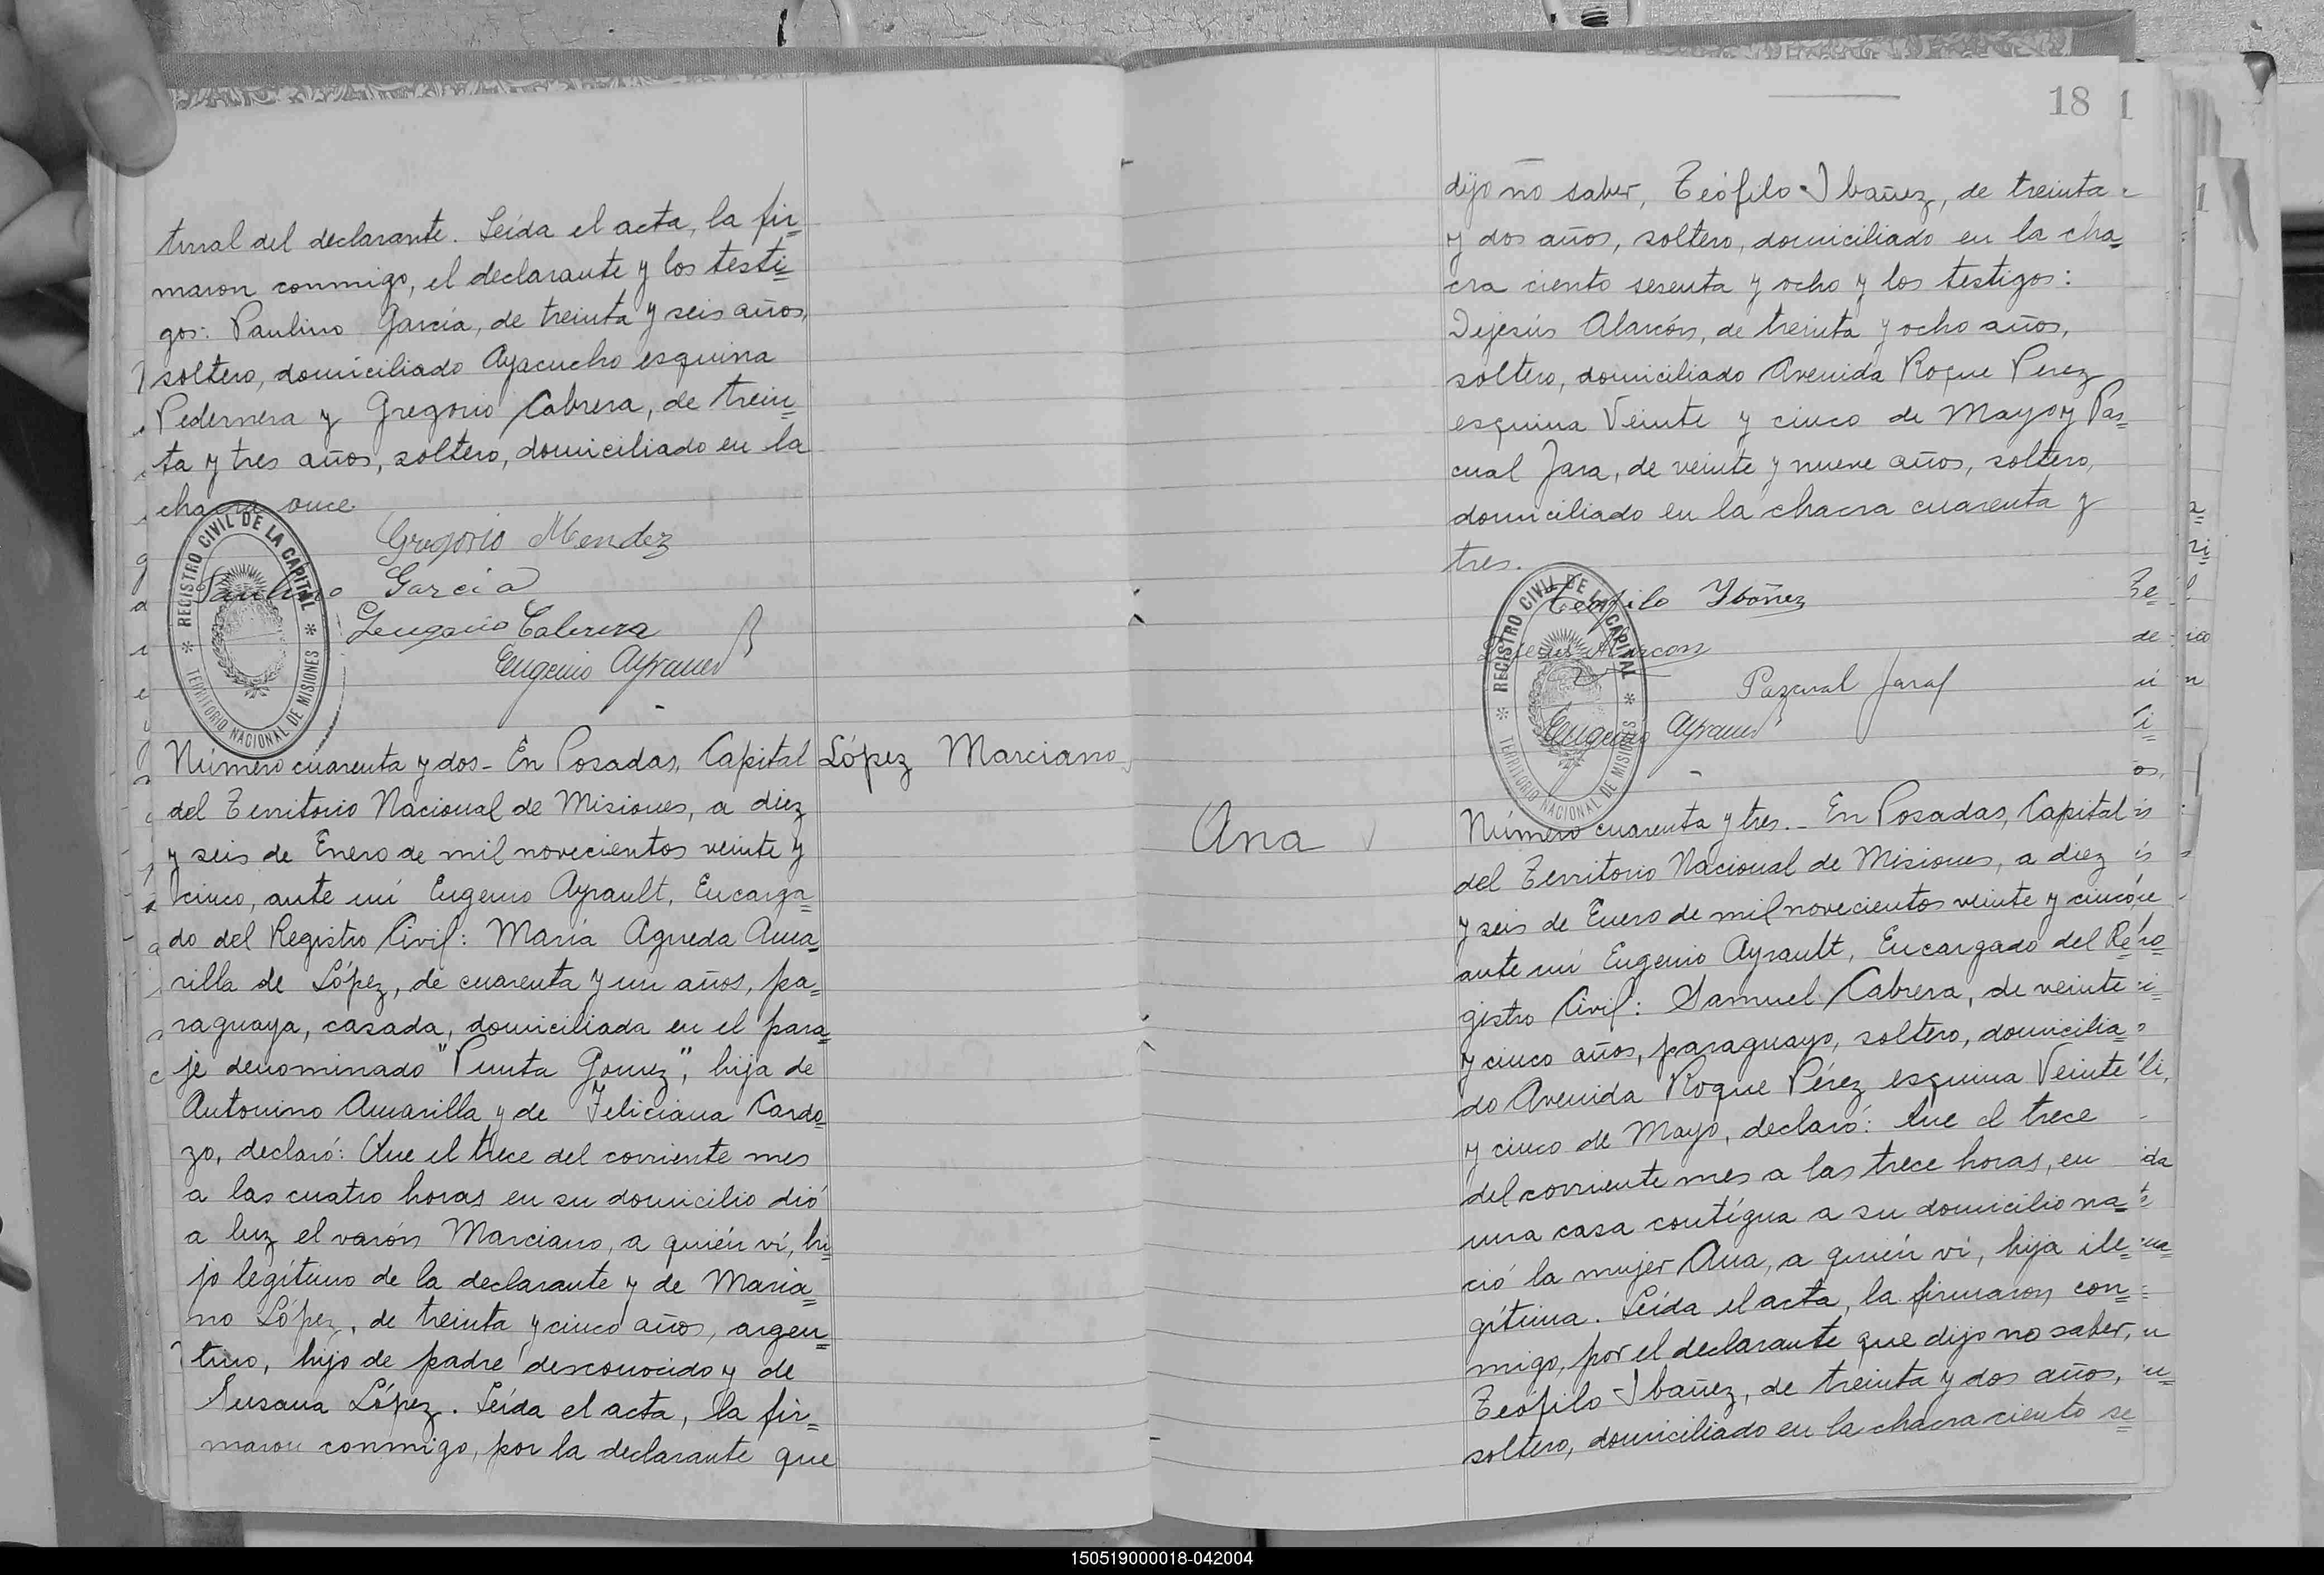 tural del declarante. Leída el acta, la fir=
maron conmigo, el declarante y los testi=
gos: Paulino García, de treinta y seis años,
soltero, domiciliado Ayacucho esquina
Pedernera y Gregorio Cabrera, de trein=
ta y tres años, soltero, domiciliado en la
chacra once
Gregorio Mendez
Paulino Garcia
Cabrera
Eugenio Ayrault
REGISTRO CIVIL DE LA CAPITAL
TERRITORIO NACIONAL DE MISIONES
Número cuarenta y dos- En Posadas, Capital
López Marciano
del Territorio Nacional de Misiones, a diez
y seis de Enero de mil novecientos veinte y
cinco, ante mí Eugenio Ayrault, Encarga=
do del Registro Civil: María Agueda Ama=
rilla de López, de cuarenta y un años, pa=
raguaya, casada, domiciliada en el para=
je denominado "Punta Gomez", hija de
Antonino Amarilla y de Feliciana Cardo=
zo, declaró: Que el trece del corriente mes
a las cuatro horas en su domicilio dió
a luz el varón Marciano, a quién ví, hi=
jo legítimo de la declarante y de Maria=
no López, de treinta y cinco años, argen=
tino, hijo de padre desconocido y de
Susana López. Leída el acta, la fir=
maron conmigo, por la declarante que
18
dijo no saber, Teófilo Ibañez, de treinta
y dos años, soltero, domiciliado en la cha=
cra ciento sesenta y ocho y los testigos:
Dejesús Alarcón, de treinta y ocho años,
soltero, domiciliado Avenida Roque Perez
esquina Veinte y cinco de Mayo y Pas=
cual Jara, de veinte y nueve años, soltero,
domiciliado en la chacra cuarenta y
tres.
Teofilo Ybañez
Dejesus Alarcon
Pazcual Jara
Eugenio Ayrault
REGISTRO CIVIL DE LA CAPITAL
TERRITORIO NACIONAL DE MISIONES
Ana
Número cuarenta y tres.- En Posadas, Capital
del Territorio Nacional de Misiones, a diez
y seis de Enero de mil novecientos veinte y cinco,
ante mí Eugenio Ayrault, Encargado del Re=
gistro Civil: Samuel Cabrera, de veinte
y cinco años, paraguayo, soltero, domicilia=
do Avenida Roque Pérez esquina Veinte
y cinco de Mayo, declaró: Que el trece
del corriente mes a las trece horas, en
una casa contígua a su domicilio na=
ció la mujer Ana, a quién ví, hija ile=
gítima. Leída el acta, la firmaron con=
migo, por el declarante que dijo no saber,
Teófilo Ibañez, de treinta y dos años,
soltero, domiciliado en la chacra ciento se=
150519000018-042004